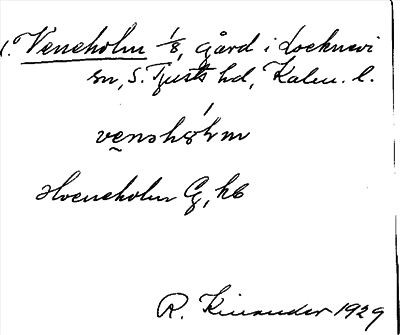 1. Veneholm 1/8, gård i Locknevi
sn, S. Tjusts hd, Kalm. l.
venshólm
Hveneholm G, hb
R. Kinander 1929